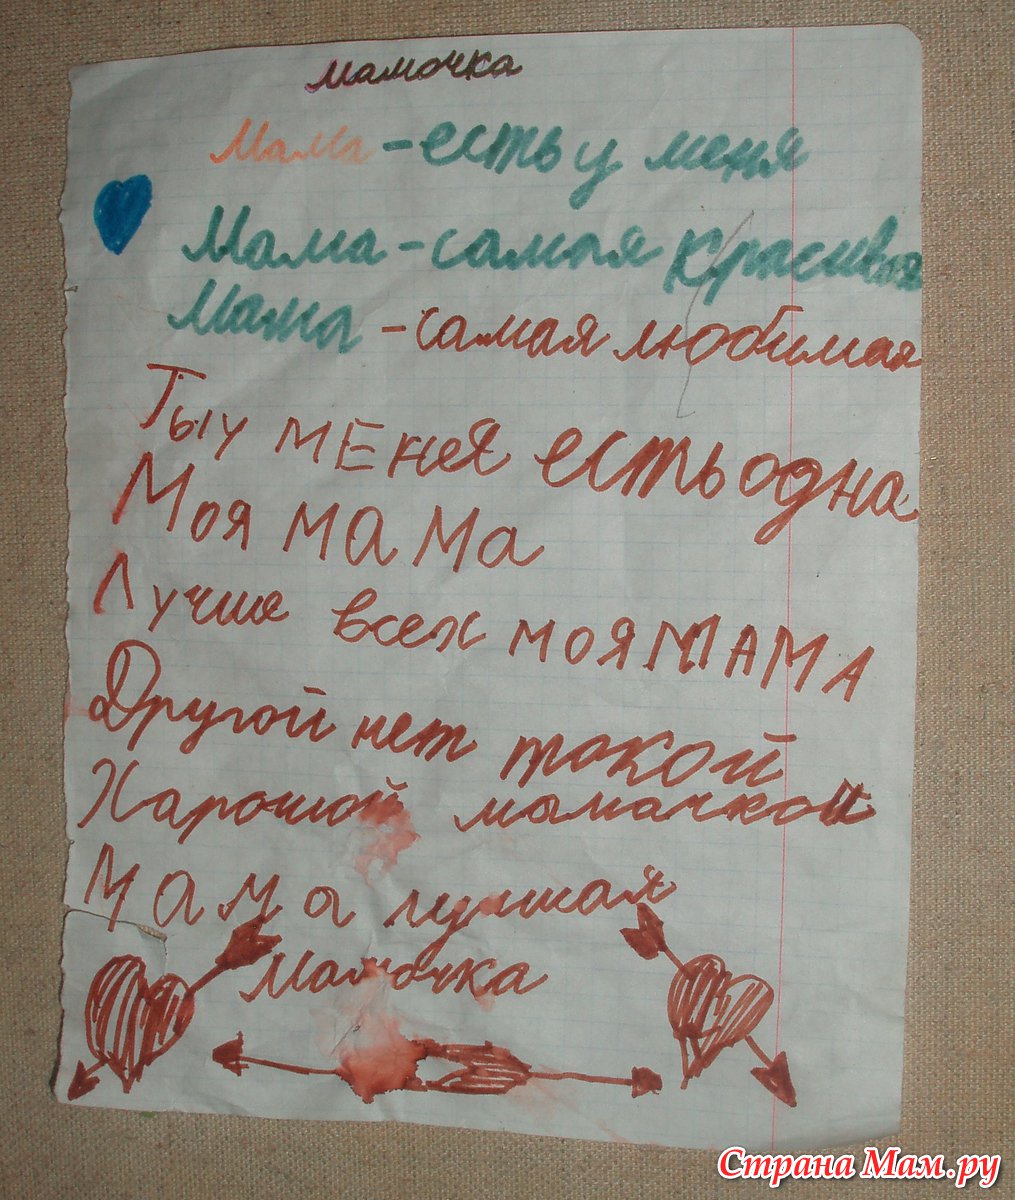 мамочка
Мама - есть у меня
Мама - самая красивая
Мама - самая любимая
Ты у мЕня есть одна
Моя мама
Лучше всех моя МАМА
Другой нет такой
Харошой мымачкой
Мама лучшая
мамочка
Страна Мам.ру